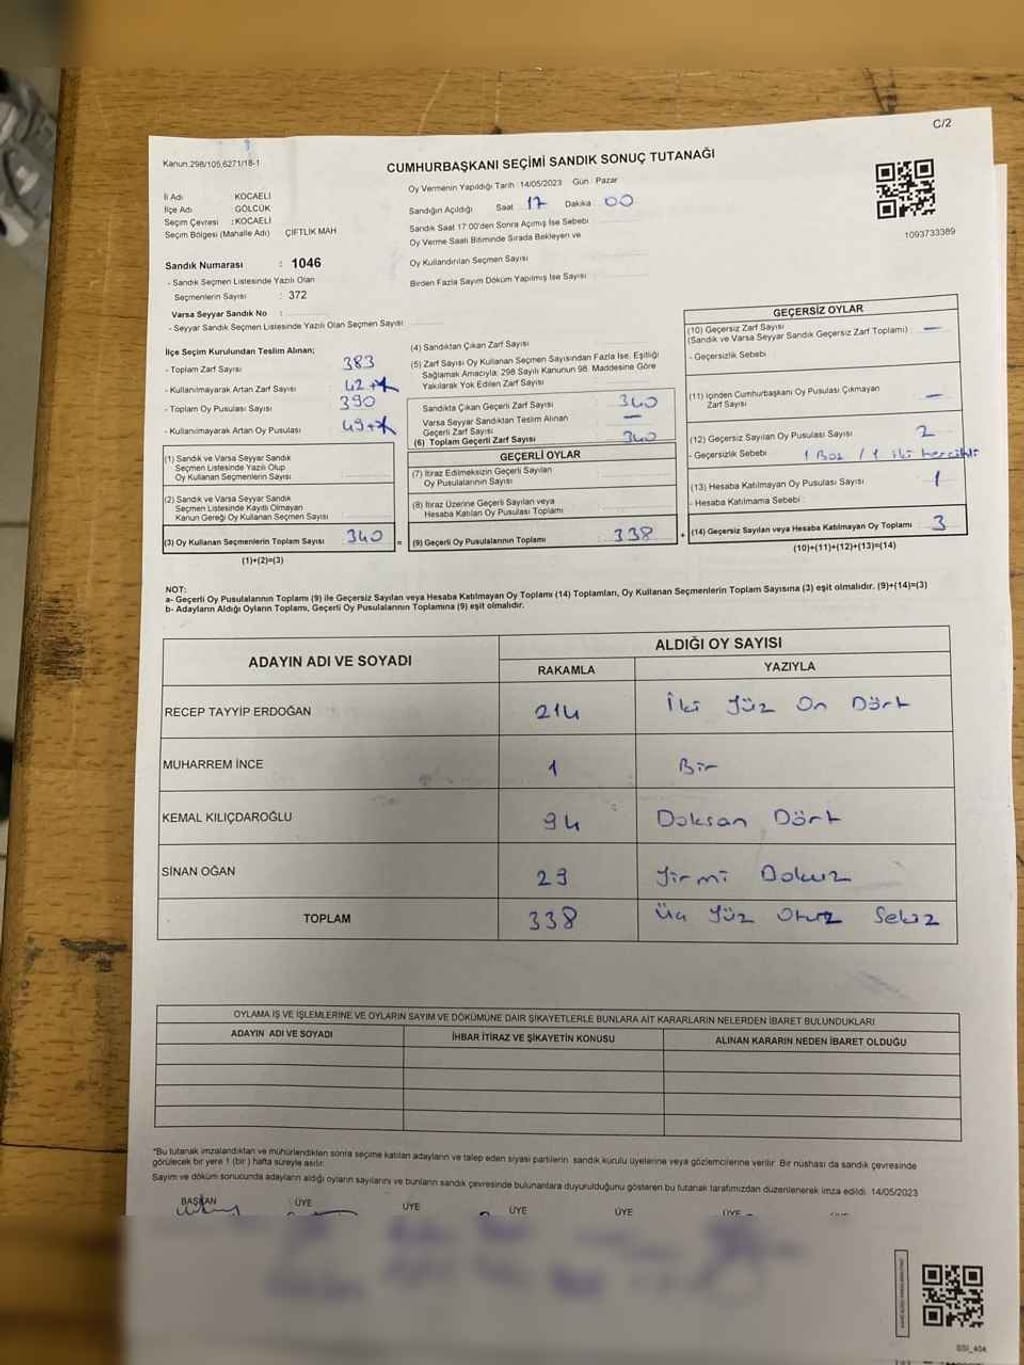 C/2
Kanun.298/105,6271/18-1
CUMHURBAŞKANI SEÇİMİ SANDIK SONUÇ TUTANAĞI
İl Adı : KOCAELİ
İlçe Adı : GÖLCÜK
Seçim Çevresi : KOCAELİ
Seçim Bölgesi (Mahalle Adı) ÇİFTLİK MAH
Oy Vermenin Yapıldığı Tarih :14/05/2023 Gün : Pazar
Sandığın Açıldığı Saat : 17 Dakika : 00
Sandık Saat 17:00'den Sonra Açılmış İse Sebebi
Oy Verme Saati Bitiminde Sırada Bekleyen ve
Oy Kullandırılan Seçmen Sayısı
Birden Fazla Sayım Döküm Yapılmış İse Sayısı
1093733389
Sandık Numarası : 1046
- Sandık Seçmen Listesinde Yazılı Olan
Seçmenlerin Sayısı : 372
Varsa Seyyar Sandık No :
- Seyyar Sandık Seçmen Listesinde Yazılı Olan Seçmen Sayısı:
İlçe Seçim Kurulundan Teslim Alınan;
- Toplam Zarf Sayısı 383
- Kullanılmayarak Artan Zarf Sayısı 42+
- Toplam Oy Pusulası Sayısı 390
- Kullanılmayarak Artan Oy Pusulası 49+
(1) Sandık ve Varsa Seyyar Sandık
Seçmen Listesinde Yazılı Olup
Oy Kullanan Seçmenlerin Sayısı
(2) Sandık ve Varsa Seyyar Sandık
Seçmen Listesinde Kayıtlı Olmayan
Kanun Gereği Oy Kullanan Seçmen Sayısı
(3) Oy Kullanan Seçmenlerin Toplam Sayısı : 340
(1)+(2)=(3)
(4) Sandıktan Çıkan Zarf Sayısı
(5) Zarf Sayısı Oy Kullanan Seçmen Sayısından Fazla İse, Eşitliği
Sağlamak Amacıyla, 298 Sayılı Kanunun 98. Maddesine Göre
Yakılarak Yok Edilen Zarf Sayısı
Sandıkta Çıkan Geçerli Zarf Sayısı : 340
Varsa Seyyar Sandıktan Teslim Alınan
Geçerli Zarf Sayısı —
(6) Toplam Geçerli Zarf Sayısı 340
GEÇERLİ OYLAR
(7) İtiraz Edilmeksizin Geçerli Sayılan
Oy Pusulalarının Sayısı
(8) İtiraz Üzerine Geçerli Sayılan veya
Hesaba Katılan Oy Pusulası Toplamı
= (9) Geçerli Oy Pusulalarının Toplamı : 338
GEÇERSİZ OYLAR
(10) Geçersiz Zarf Sayısı
(Sandık ve Varsa Seyyar Sandık Geçersiz Zarf Toplamı) : —
- Geçersizlik Sebebi
(11) İçinden Cumhurbaşkanı Oy Pusulası Çıkmayan
Zarf Sayısı —
(12) Geçersiz Sayılan Oy Pusulası Sayısı : 2
- Geçersizlik Sebebi : 1 Boş / 1 iki tercihli
(13) Hesaba Katılmayan Oy Pusulası Sayısı : 1
- Hesaba Katılmama Sebebi :
+ (14) Geçersiz Sayılan veya Hesaba Katılmayan Oy Toplamı : 3
(10)+(11)+(12)+(13)=(14)
NOT:
a- Geçerli Oy Pusulalarının Toplamı (9) ile Geçersiz Sayılan veya Hesaba Katılmayan Oy Toplamı (14) Toplamları, Oy Kullanan Seçmenlerin Toplam Sayısına (3) eşit olmalıdır. (9)+(14)=(3)
b- Adayların Aldığı Oyların Toplamı, Geçerli Oy Pusulalarının Toplamına (9) eşit olmalıdır.
ADAYIN ADI VE SOYADI
ALDIĞI OY SAYISI
RAKAMLA YAZIYLA
RECEP TAYYİP ERDOĞAN 214 İki Yüz On Dört
MUHARREM İNCE 1 Bir
KEMAL KILIÇDAROĞLU 94 Doksan Dört
SİNAN OĞAN 29 Yirmi Dokuz
TOPLAM 338 Üç Yüz Otuz Sekiz
OYLAMA İŞ VE İŞLEMLERİNE VE OYLARIN SAYIM VE DÖKÜMÜNE DAİR ŞİKAYETLERLE BUNLARA AİT KARARLARIN NELERDEN İBARET BULUNDUKLARI
ADAYIN ADI VE SOYADI İHBAR İTİRAZ VE ŞİKAYETİN KONUSU ALINAN KARARIN NEDEN İBARET OLDUĞU
*Bu tutanak imzalandıktan ve mühürlendikten sonra seçime katılan adayların ve talep eden siyasi partilerin sandık kurulu üyelerine veya gözlemcilerine verilir. Bir nüshası da sandık çevresinde
görülecek bir yere 1 (bir) hafta süreyle asılır.
Sayım ve döküm sonucunda adayların aldığı oyların sayılarını ve bunların sandık çevresinde bulunanlara duyurulduğunu gösteren bu tutanak tarafımızdan düzenlenerek imza edildi. 14/05/2023
BAŞKAN ÜYE ÜYE ÜYE ÜYE ÜYE